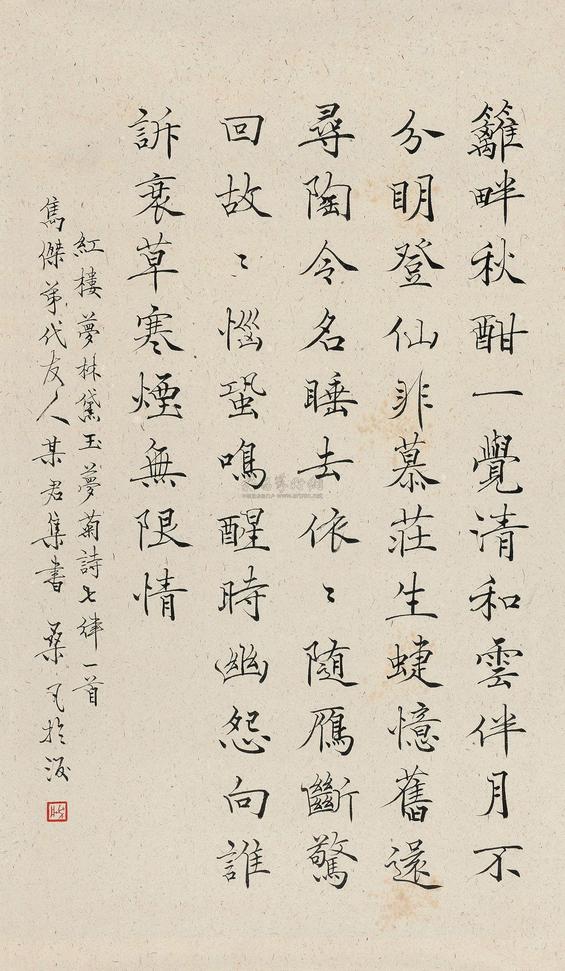 籬畔秋酣一覺清和雲伴月不
分明登仙非慕莊生蜨憶舊還
尋陶令名睡去依〻隨鴈斷驚
回故〻惱蛩鳴醒時幽怨向誰
訴衰草寒煙無限情
紅樓夢林黛玉夢菊詩七律一首
雋傑弟代友人某君書 桑凡於滬